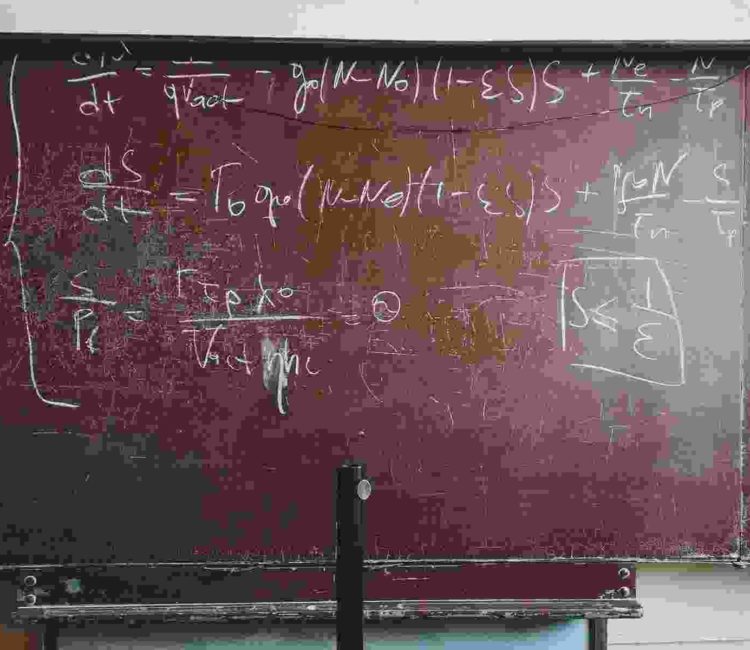 dN/dt = I/qVact - g₀(N-N₀)(1-εS)S + Ne/τn - N/τp
dS/dt = Γ₀g₀(N-N₀)(1-εS)S + βₒN/τn - S/τp
S/Pf = Γτpλ₀/Vactηhc = ②
S ≤ 1/ε